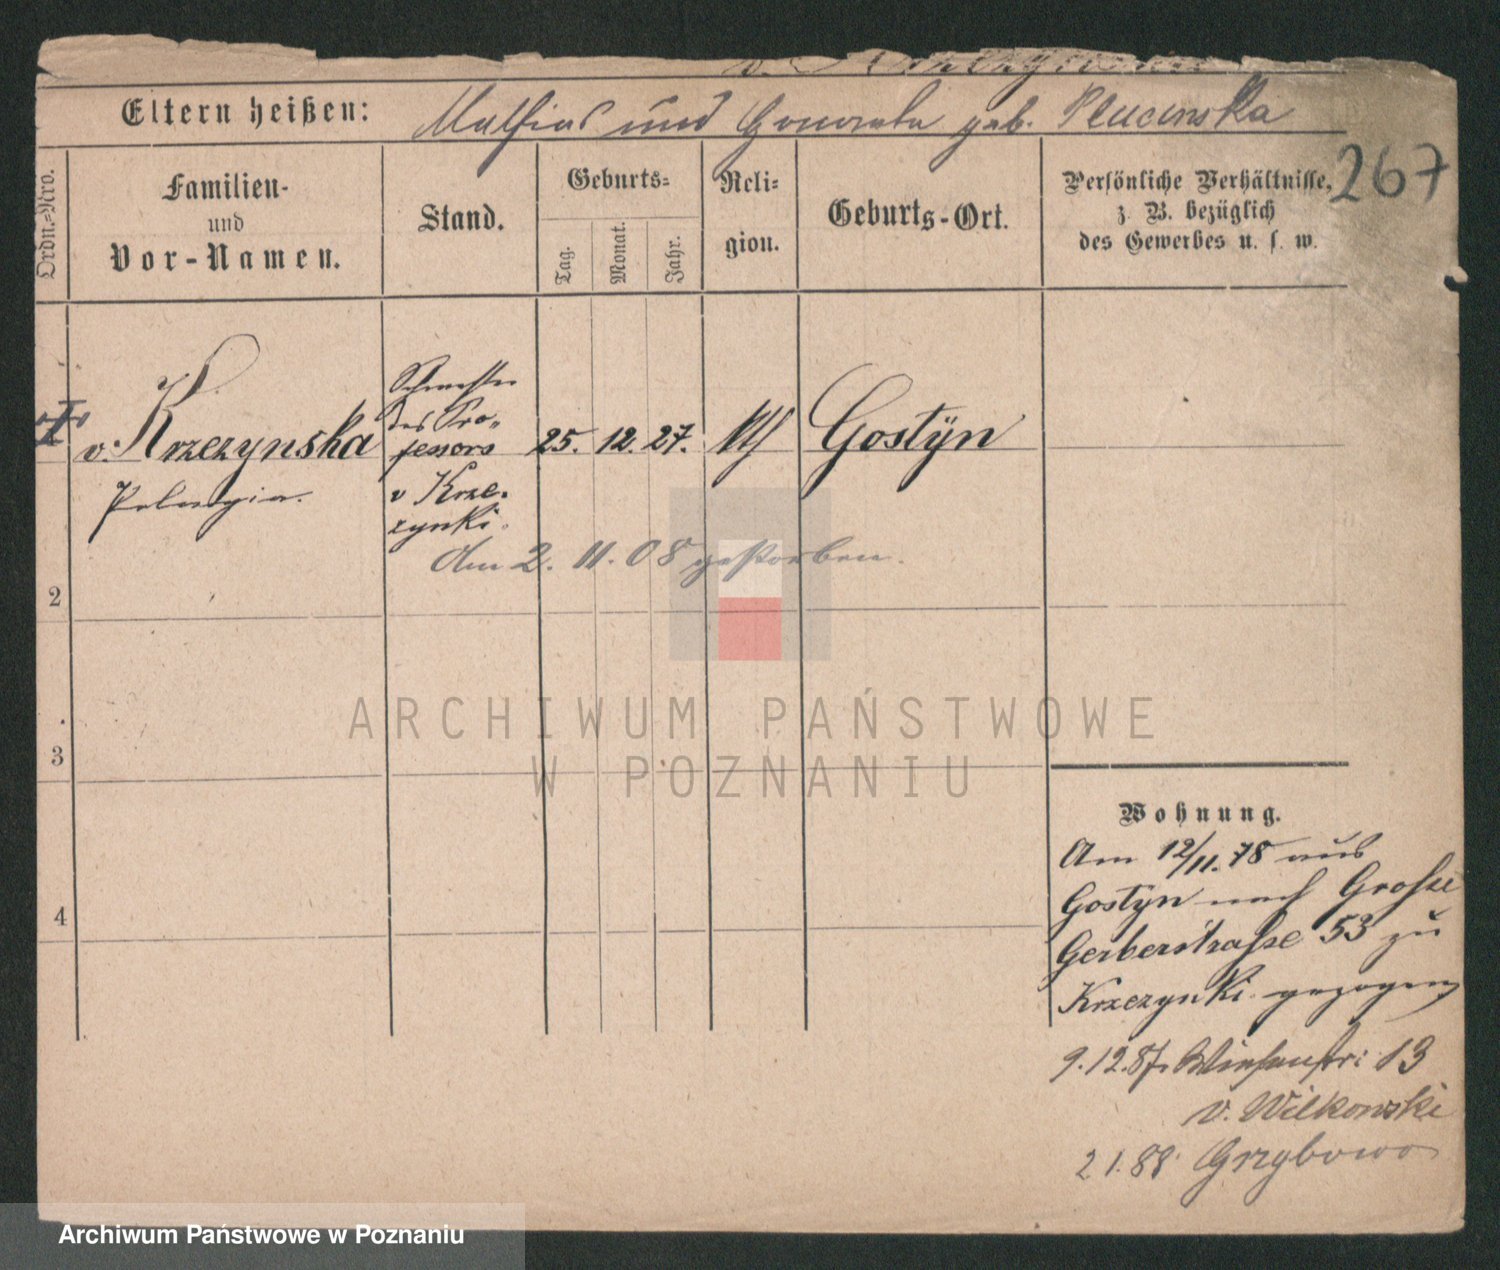 Eltern heißen: Mathias und Honorata geb. Plucinska
267
Ordn.-Nro.
Familien-
und
Vor-Namen.
Stand.
Geburts-
Tag.
Monat.
Jahr.
Reli-
gion.
Geburts-Ort.
Persönliche Verhältnisse,
z. B. bezüglich
des Gewerbes u. s. w.
v. Krzezynska
Pelagia.
Schwester
des Pro-
fessors
v Krze-
zynki.
25. 12. 27.
kth
Gostÿn
am 2. 11. 08 gestorben.
2
3
4
ARCHIWUM PAŃSTWOWE
W POZNANIU
Wohnung.
Am 12/11. 78 aus
Gostÿn nach Große
Gerberstraße 53 zu
Krzezynki gezogen
9.12.87. Wiesenstr: 13
v. Wilkonski
2 1. 88 Grzybowo
Archiwum Państwowe w Poznaniu